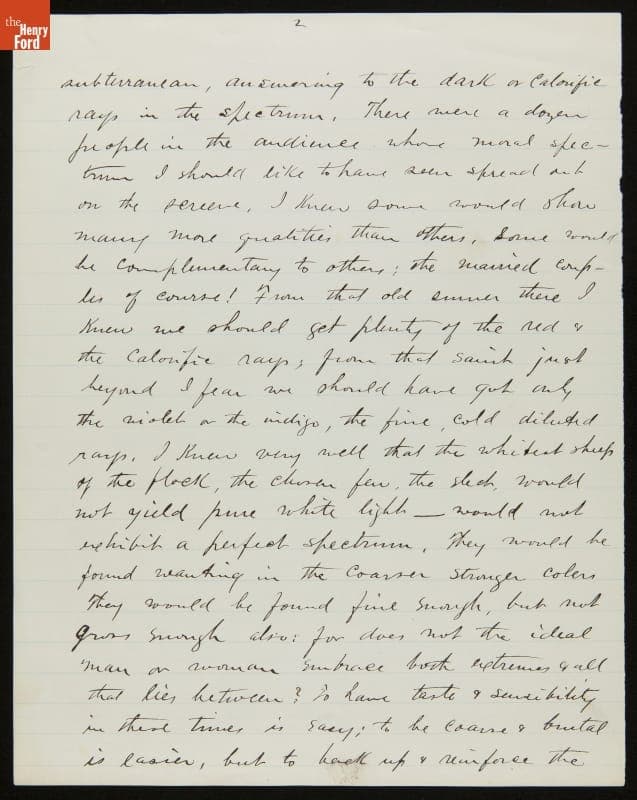 the
Henry
Ford
2
subterranean, answering to the dark or Calorific
rays in the spectrum. There were a dozen
people in the audience whose moral spec-
trum I should like to have seen spread out
on the screene. I knew some would show
many more qualities than others. Some would
be complementary to others; the married coup-
les of course! From that old sinner there I
knew we should get plenty of the red &
the Calorific rays; from that saint just
beyond I fear we should have got only
the violet or the indigo, the fine, cold diluted
rays. I knew very well that the whitest sheep
of the flock, the chosen few, the elect, would
not yield pure white light — would not
exhibit a perfect spectrum. They would be
found wanting in the coarser stronger colers
They would be found fine enough, but not
gross enough also: for does not the ideal
man or woman embrace both extremes & all
that lies between? To have taste & sensibility
in these times is easy; to be coarse & brutal
is easier, but to back up & reinforce the